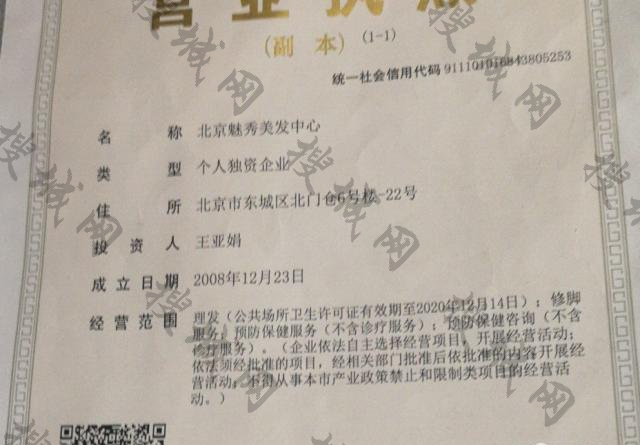 营业执照
(副本)(1-1)
统一社会信用代码 911101016843805253
名称 北京魅秀美发中心
类型 个人独资企业
住所 北京市东城区北门仓6号楼-22号
投资人 王亚娟
成立日期 2008年12月23日
经营范围 理发（公共场所卫生许可证有效期至2020年12月14日）；修脚
服务；预防保健服务（不含诊疗服务）；预防保健咨询（不含
诊疗服务）。（企业依法自主选择经营项目，开展经营活动；
依法须经批准的项目，经相关部门批准后依批准的内容开展经
营活动；不得从事本市产业政策禁止和限制类项目的经营活
动。）
搜城网
搜城网
搜城网
搜城网
搜城网
搜城网